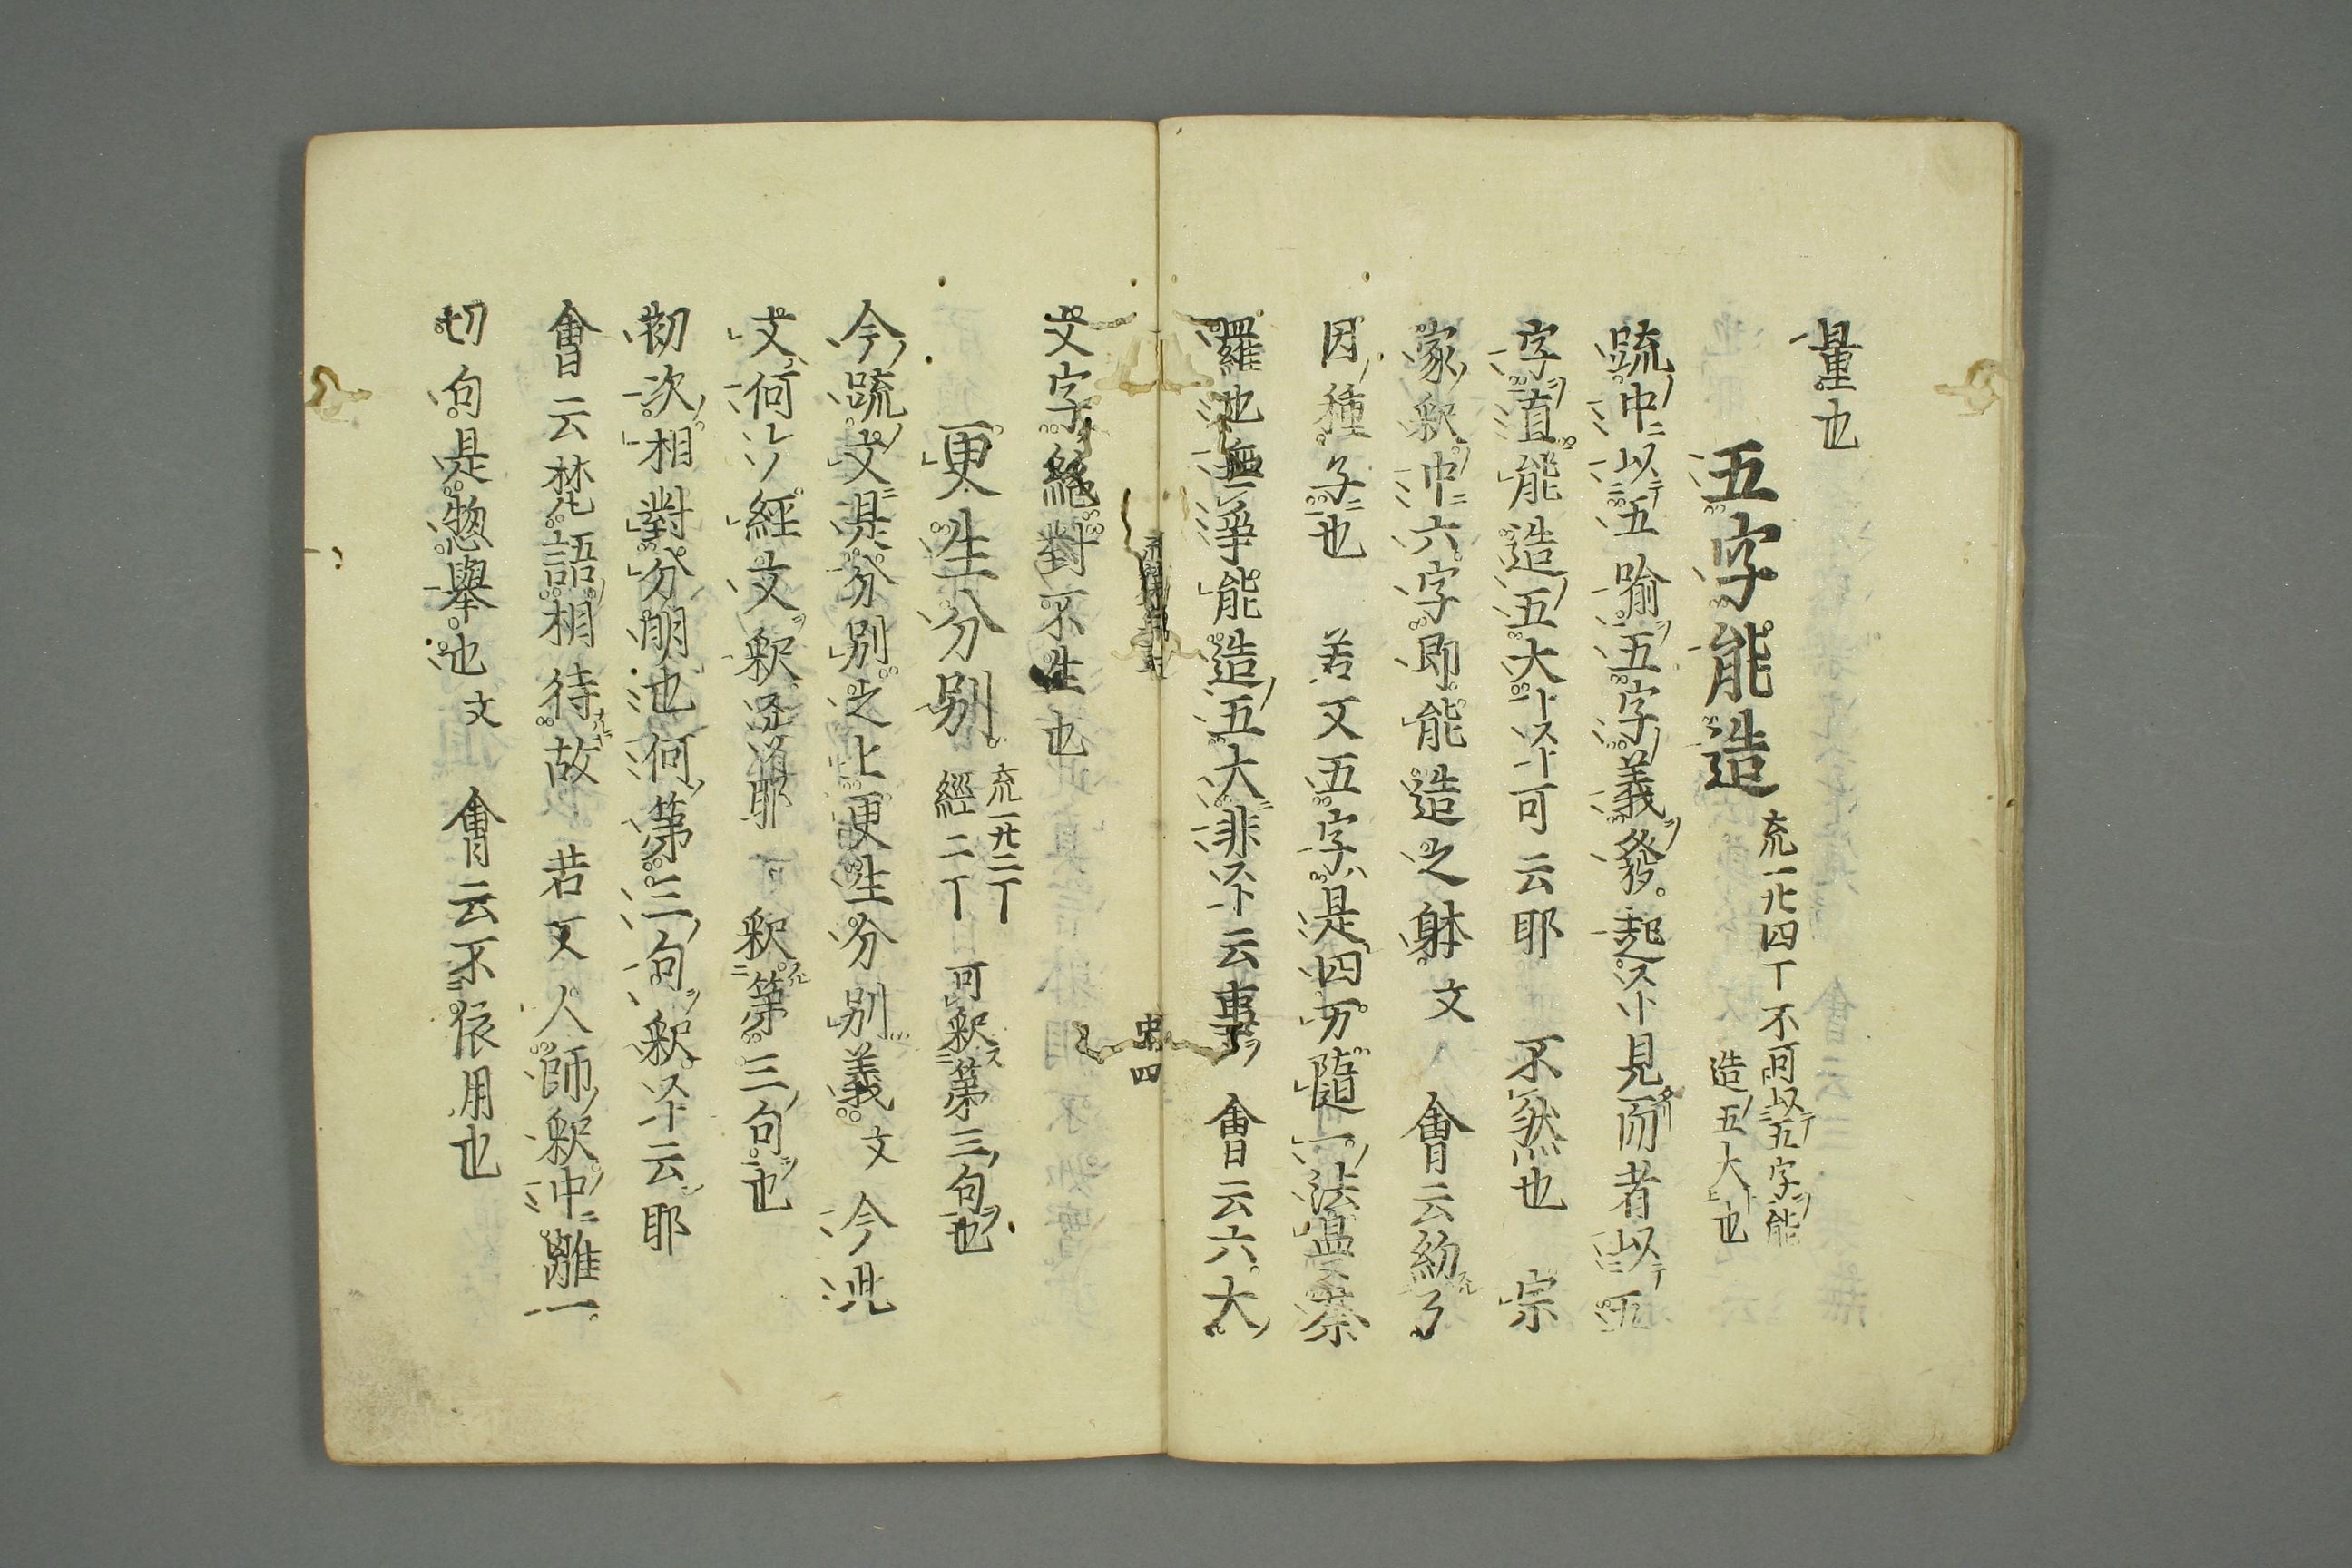 量也
五字能造
疏一廿四丁不可以五字能
造五大也
疏中以五喻五字義發起スト見而者以
字直能造五大トスト可云耶 不然也 宗
家釈中六字即能造之躰文 會云約
因種子也 若又五字是四万隨一法
羅也無爭能造五大非スト云事 會云六大
文字絶對不生也
更生分別
疏一廿二丁
經二丁
可釈第三句也
今疏文是分別之上更生分別義文 今況
文何レソ經文釈 耶 釈第三句也
初次相對分明也何第三句釈スト云耶
會云梵語相待故 若又人師釈中離一
切句是惣舉也文 會云不依用也